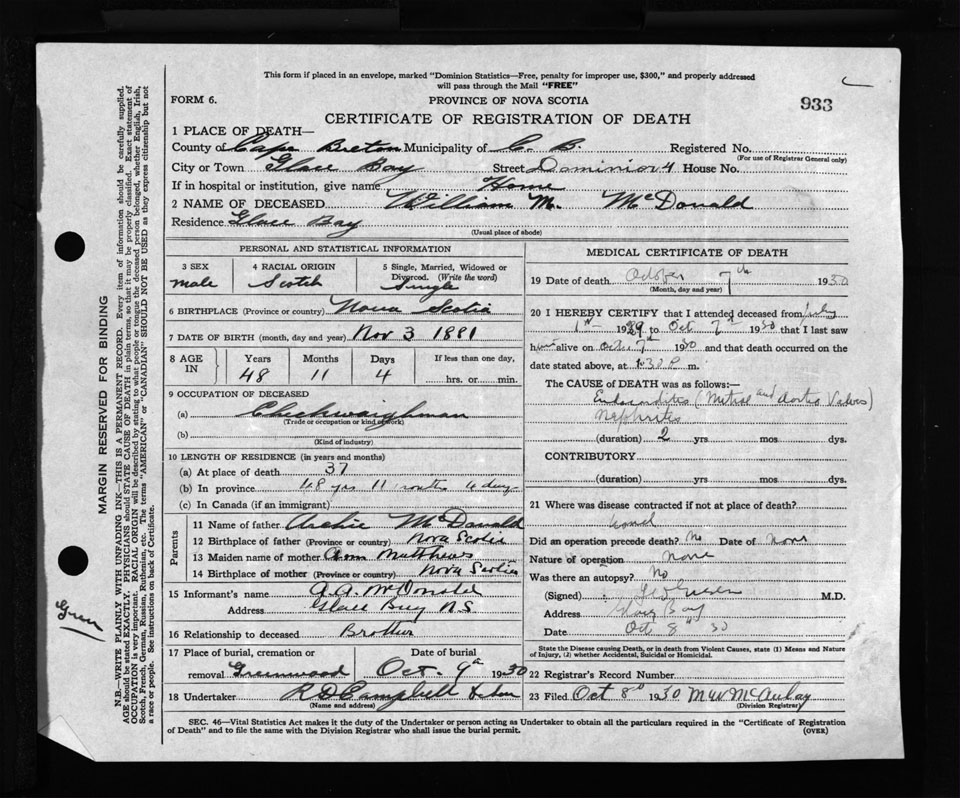 This form if placed in an envelope, marked "Dominion Statistics—Free, penalty for improper use, $300," and properly addressed
will pass through the Mail "FREE"
FORM 6.
PROVINCE OF NOVA SCOTIA
933
CERTIFICATE OF REGISTRATION OF DEATH
1 PLACE OF DEATH—
County of Cape Breton Municipality of C. B. Registered No.
(For use of Registrar General only)
City or Town Glace Bay Street Dominion 4 House No.
If in hospital or institution, give name Home
2 NAME OF DECEASED William M. McDonald
Residence Glace Bay
(Usual place of abode)
PERSONAL AND STATISTICAL INFORMATION
3 SEX 4 RACIAL ORIGIN 5 Single, Married, Widowed or
Divorced. (Write the word)
male Scotch Single
6 BIRTHPLACE (Province or country) Nova Scotia
7 DATE OF BIRTH (month, day and year) Nov 3 1881
8 AGE IN Years Months Days If less than one day,
48 11 4 hrs. or min.
9 OCCUPATION OF DECEASED
(a) Checkweighman
(Trade or occupation or kind of work)
(b)
(Kind of industry)
10 LENGTH OF RESIDENCE (in years and months)
(a) At place of death 37
(b) In province 48 yrs 11 months 4 days
(c) In Canada (if an immigrant)
Parents
11 Name of father Archie McDonald
12 Birthplace of father (Province or country) Nova Scotia
13 Maiden name of mother Ann Matthews
14 Birthplace of mother (Province or country) Nova Scotia
15 Informant's name A. A. McDonald
Address Glace Bay N.S.
16 Relationship to deceased Brother
17 Place of burial, cremation or Date of burial
removal Greenwood Oct. 9th 1930
18 Undertaker R D Campbell & Son
(Name and address)
MEDICAL CERTIFICATE OF DEATH
19 Date of death October 7th 1930
(Month, day and year)
20 I HEREBY CERTIFY that I attended deceased from July
1st 1929 to Oct 7th 1930 that I last saw
him alive on Oct 7th 1930 and that death occurred on the
date stated above, at 1.30 P. m.
The CAUSE OF DEATH was as follows:—
Endocarditis (Mitral and Aortic Valves)
Nephritis
(duration) 2 yrs. mos. dys.
CONTRIBUTORY
(duration) yrs. mos. dys.
21 Where was disease contracted if not at place of death?
Did an operation precede death? No Date of none
Nature of operation none
Was there an autopsy? No
(Signed) M.D.
Address Glace Bay
Date Oct 8th 30
State the Disease causing Death, or in death from Violent Causes, state (1) Means and Nature
of Injury, (2) whether Accidental, Suicidal or Homicidal.
22 Registrar's Record Number
23 Filed Oct 8th 1930 M W McAulay
(Division Registrar)
SEC. 46—Vital Statistics Act makes it the duty of the Undertaker or person acting as Undertaker to obtain all the particulars required in the "Certificate of Registration
of Death" and to file the same with the Division Registrar who shall issue the burial permit.
(OVER)
MARGIN RESERVED FOR BINDING
N.B.—WRITE PLAINLY WITH UNFADING INK—THIS IS A PERMANENT RECORD. Every item of information should be carefully supplied.
AGE should be stated EXACTLY. PHYSICIANS should STATE CAUSE OF DEATH in plain terms, so that it may be properly classified. Exact statement of
OCCUPATION is very important. RACIAL ORIGIN will be described by stating to what people or tongue the deceased person belonged, whether English, Irish,
Scotch, French, German, Russian, Ruthenian, etc. The terms "AMERICAN" or "CANADIAN" SHOULD NOT BE USED as they express citizenship but not
a race or people. See instructions on back of Certificate.